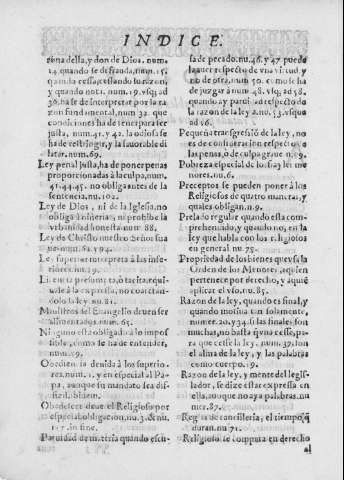 INDICE.
zona della, y don de Dios. num.
14. quando se defrauda, num. 15.
quando cessa, cessando la razon,
y quando no. num. 19. vsq; ad
39. ha se de interpretar por la ra
zon fundamental, num 32. que
condiciones ha de tener para ser
justa, num. 41. y 42. la odiosa se
ha de restringir, y la fauorable di
latar. num. 69.
Ley penal justa, ha de poner penas
proporcionadas à la culpa, num.
41. 44. 45. no obliga antes de la
sentencia, nu. 102.
Ley de Dios, ni de la Iglesia, no
obliga à niñerias, ni prohibe la
vrbanidad honesta num. 88.
Ley de Christo nuestro Señor
Ley superior interpreta à las infe
riores. nu. 19.
Licencia presunta, ò tacita, equi
uale à la expressa, no
dolo la ley. nu. 81.
Ministros del Euangelio deuen ser
alimentados. num. 65.
Ninguno està obligado à lo impos
sible, como se ha de enten
der, num. 29.
Obediencia deuida à los superio
res, num. 1. y en especial al Pa
pa, aunque su mandato sea dif
ficil, ibidem.
Obedecer deue el Religioso por
especial obligacion. nu. 3. & nu.
in fine.
Paruidad de materia quando escu-
sa de pecado. nu. 46. y 47 puede
la auer respecto de vna virtud, y
no de otra, num 50. como se ha
de juzgar à num 48. vsq; ad 58.
quando ay paruidad respecto de
la razon de la ley à nu. 53. vsque
ad 56.
Pequeña transgressiõ de la ley, no
es de consideracion respecto à
las penas, ò de culpa graue nu. 9.
Pobreza especial de los frayles me
nores. nu. 6.
Preceptos se pueden poner à los
Religiosos de quatro maneras, y
quales obligan. n. 9.
Prelado regular quando està com-
prehendido, y quando no, en la
ley que habla con los religiosos
en general nu. 75.
Propriedad de los bienes que vsa la
Orden de los Menores, à quien
pertenece por derecho, y à quiẽ
aplicar el vso, nu. 85.
Razon de la ley, quando es final, y
quando motiua tan solamente,
numer. 20. y 34. si las finales son
muchas, no basta q̃ vna cesse, pa
ra que cesse la ley, num. 39. son
el alma de la ley, y las palabras
como cuerpo. n. 19.
Razon de la ley, y mente del legis-
lador, se dize estar expressa en
ella, aunque no aya palabras. nu
mer. 87.
Reglas de cancilleria, el tiempo q̃
duran. nu 71.
Religioso se computa en derecho
al